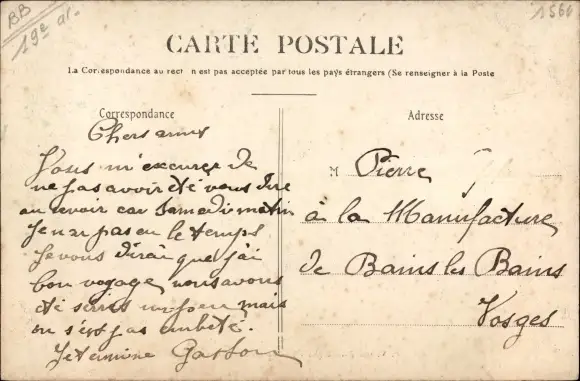 BB
19e ar.
1566
CARTE POSTALE
La Correspondance au rect n est pas acceptée par tous les pays étrangers (Se renseigner à la Poste
Correspondance
Chers amis
Vous m'excuserez de
ne pas avoir été vous dire
au revoir car samedi matin
Je n'ai pas eu le temps
Je vous dirai que j'ai
bon voyage, nous avons
été serrés un peu mais
on s'est pas embêté.
Je termine Gaston
Adresse
M Pierre
à la Manufacture
de Bains les Bains
Vosges